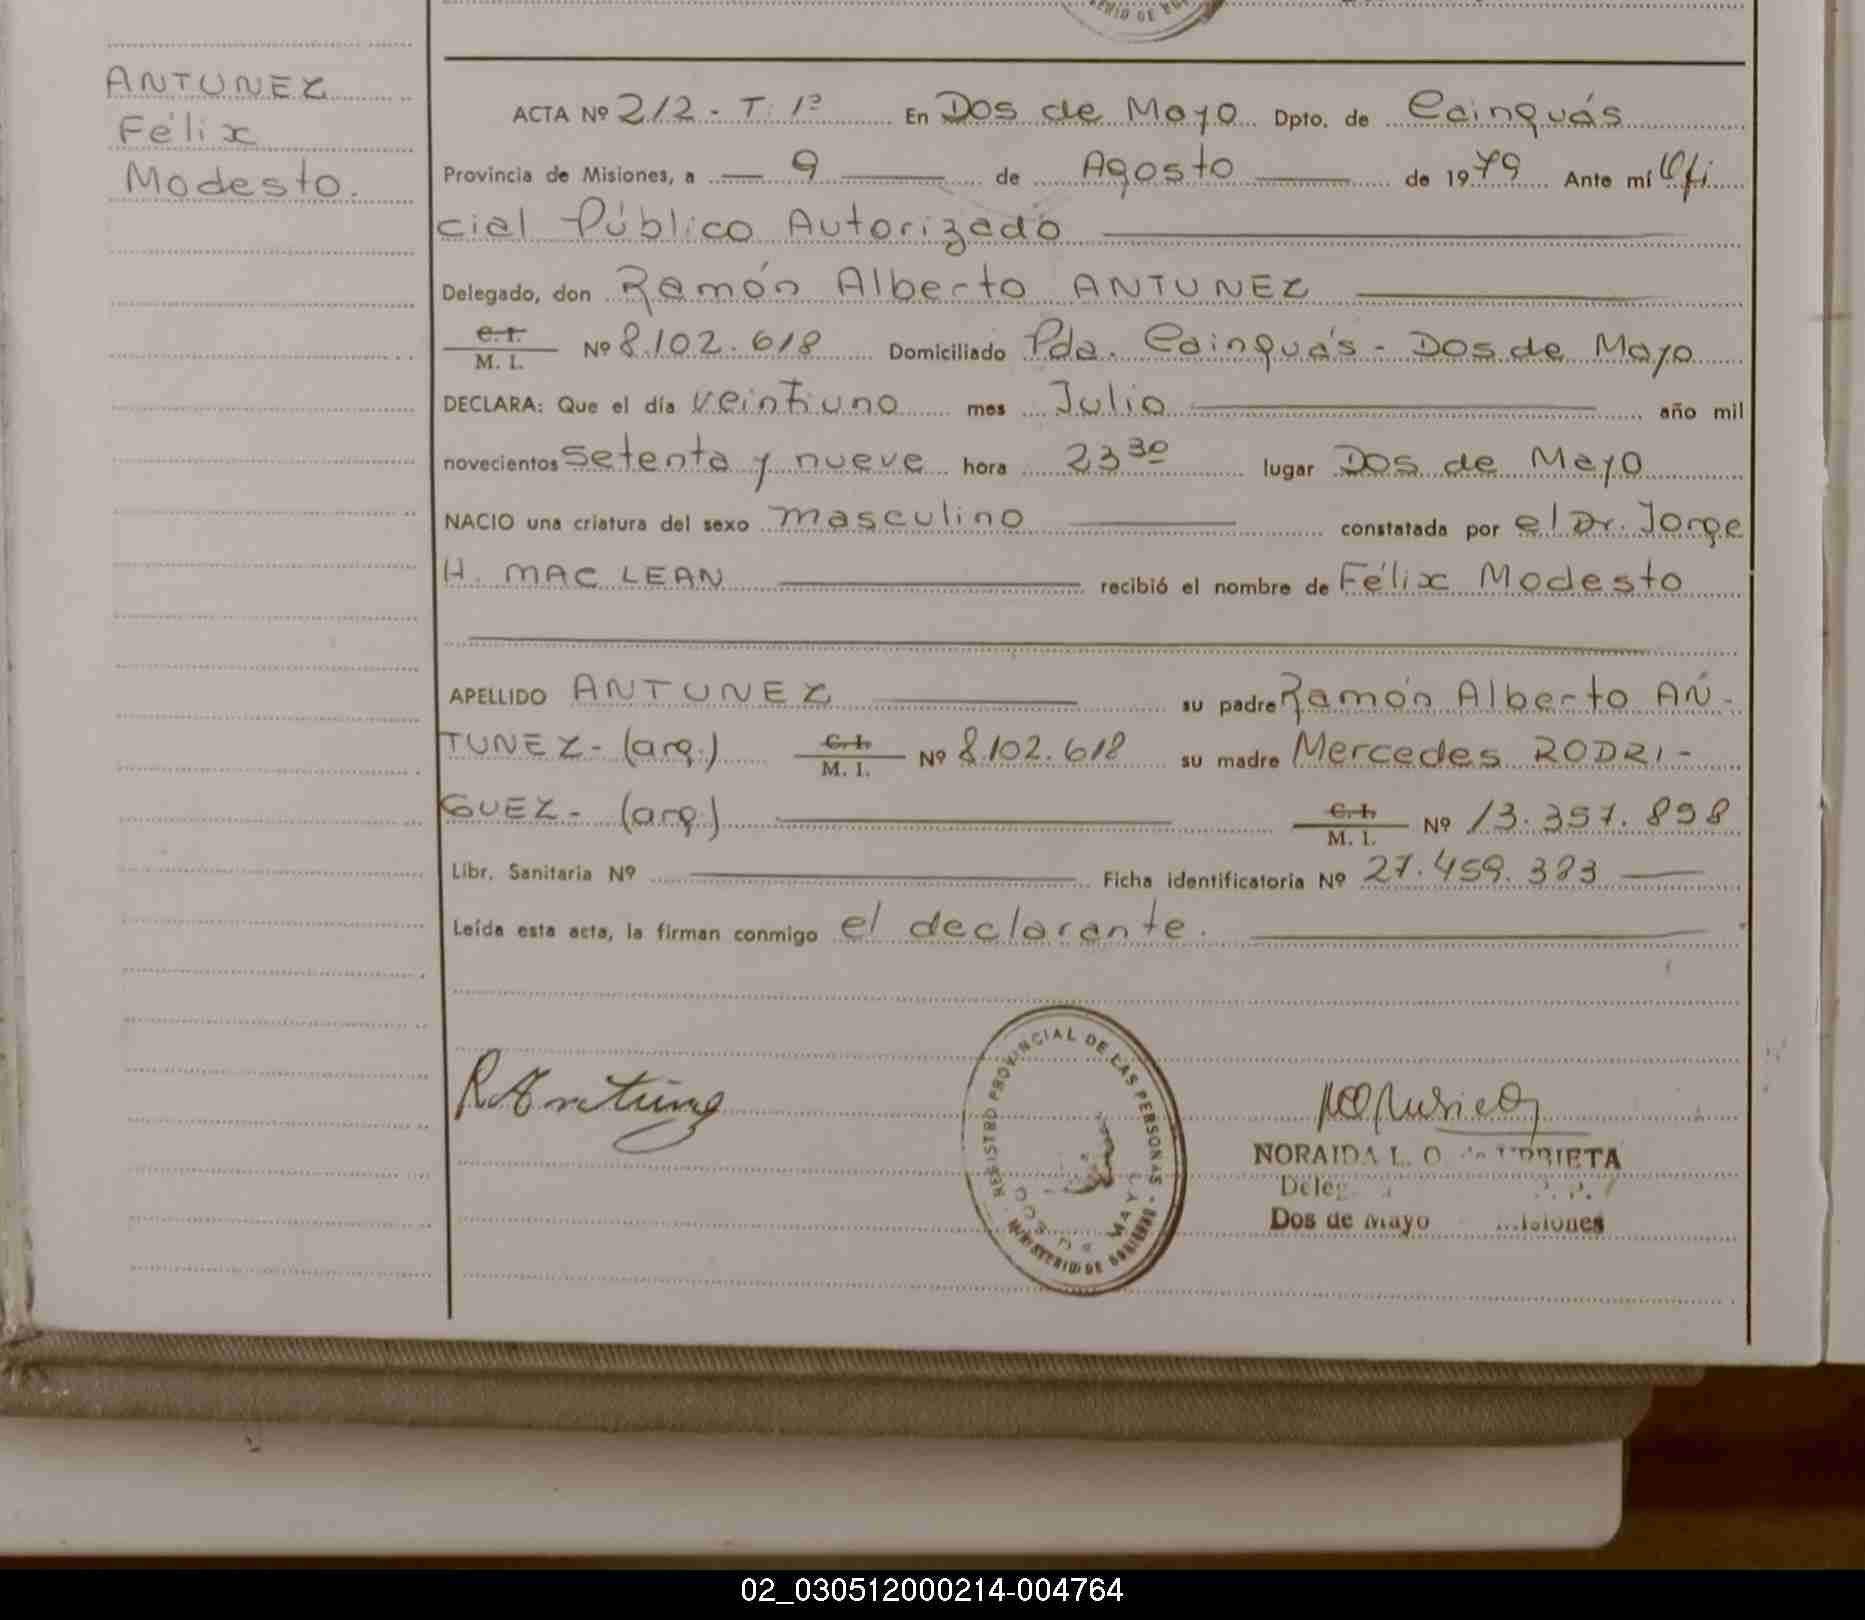 ANTUNEZ
Félix
Modesto.
ACTA Nº 212 - T: 1º En Dos de Mayo Dpto. de Cainguás
Provincia de Misiones, a 9 de Agosto de 1979 Ante mí Ofi
cial Público Autorizado
Delegado, don Ramón Alberto ANTUNEZ
C. I.
M. I. Nº 8.102.618 Domiciliado Pda. Cainguás - Dos de Mayo
DECLARA: Que el día veintiuno mes Julio año mil
novecientos setenta y nueve hora 23 30 lugar Dos de Mayo
NACIO una criatura del sexo masculino constatada por el Dr. Jorge
H. MAC LEAN recibió el nombre de Félix Modesto
APELLIDO ANTUNEZ su padre Ramón Alberto AN-
TUNEZ - (arg.) C. I. M. I. Nº 8.102.618 su madre Mercedes RODRI-
GUEZ - (arg.) C. I. M. I. Nº 13.357.898
Libr. Sanitaria Nº Ficha identificatoria Nº 27.459.393
Leída esta acta, la firman conmigo el declarante.
RAntunez
REGISTRO PROVINCIAL DE LAS PERSONAS - MINISTERIO DE GOBIERNO
DOS DE MAYO
NORAIDA L. O. de URRIETA
Dos de Mayo Misiones
02_030512000214-004764